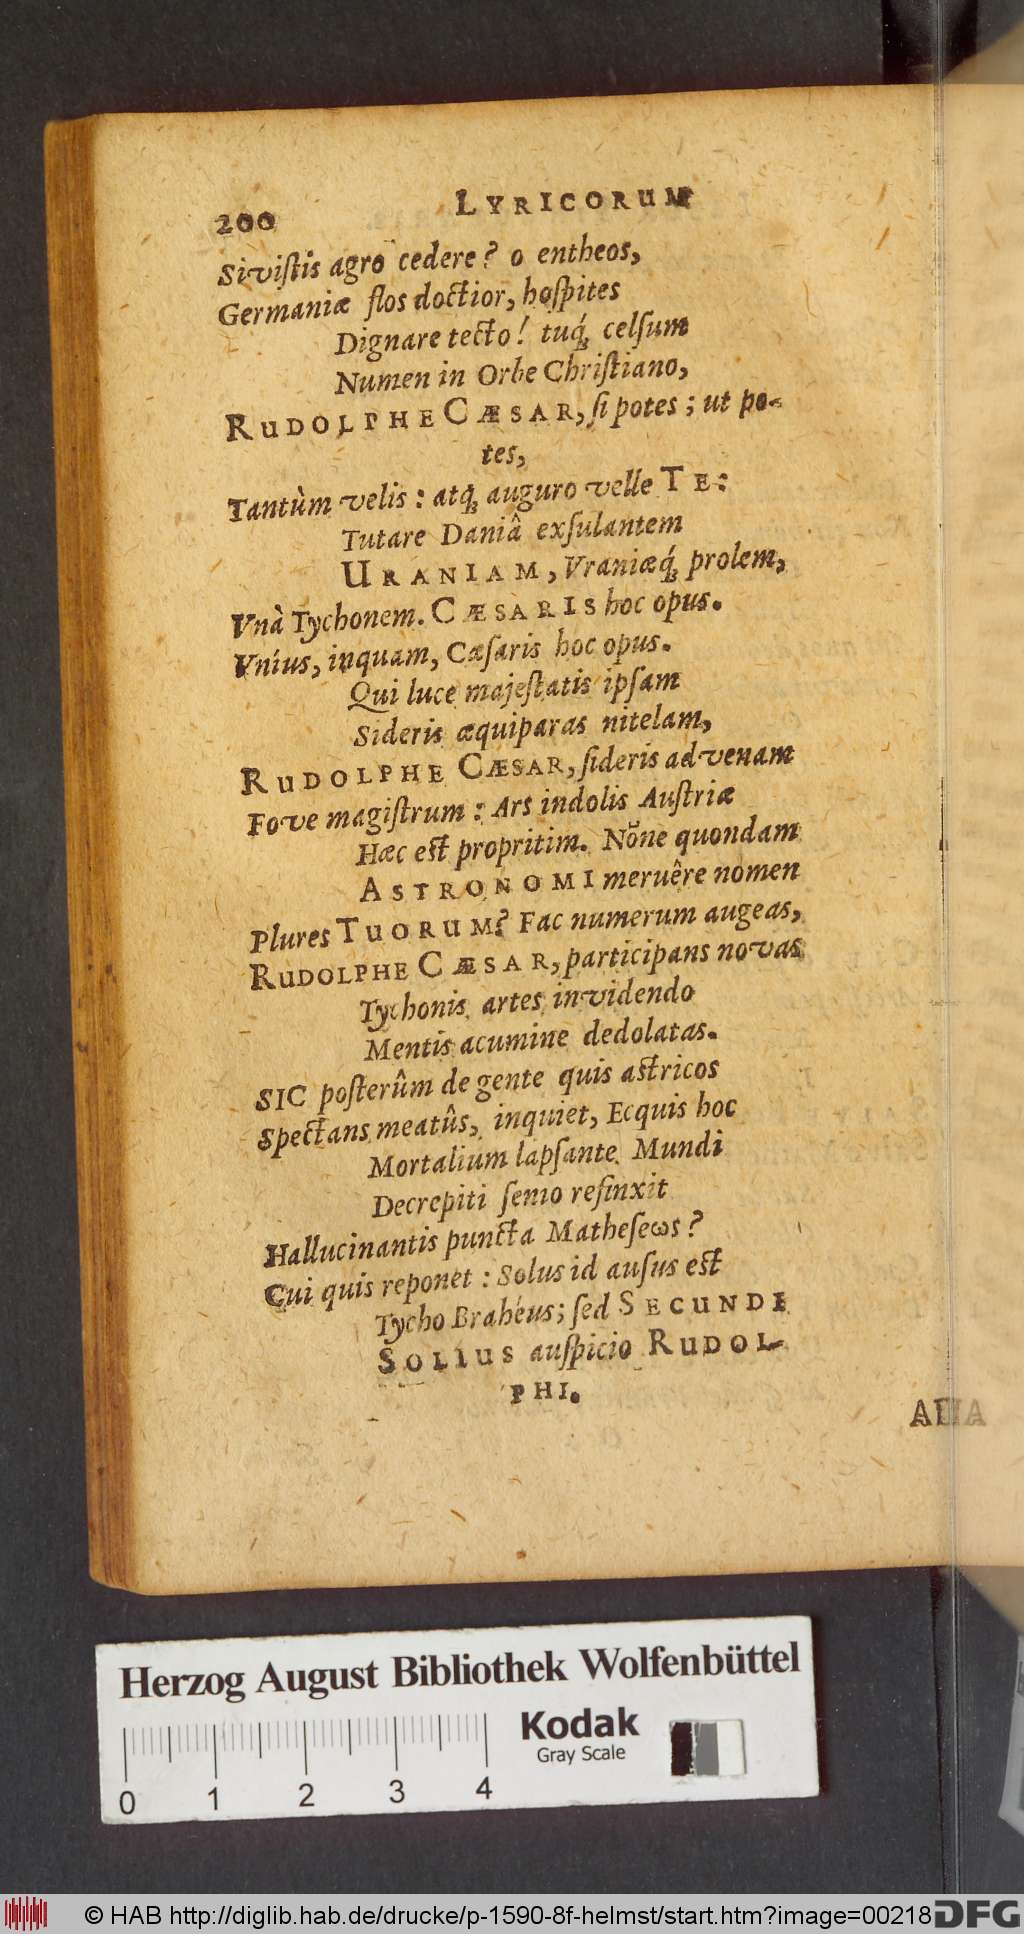 200 LYRICORUM
Siviſtis agro cedere? o entheos,
Germaniæ flos doctior, hoſpites
Dignare tecto! tuq́; celſum
Numen in Orbe Chriſtiano,
RUDOLPHE CÆSAR, ſi potes; ut po-
tes,
Tantùm velis: atq; auguro velle TE:
Tutare Daniâ exſulantem
URANIAM, Vraniæq́; prolem,
Vnà Tychonem. CÆSARIS hoc opus.
Vnius, inquam, Cæſaris hoc opus.
Qui luce majeſtatis ipſam
Sideris æquiparas nitelam,
RUDOLPHE CÆSAR, ſideris advenam
Fove magiſtrum: Ars indolis Auſtriæ
Hæc est propritim. Nŏne quondam
ASTRONOMI meruêre nomen
Plures TUORUM? Fac numerum augeas,
RUDOLPHE CÆSAR, participans novas
Tychonis artes invidendo
Mentis acumine dedolatas.
SIC poſterûm de gente quis aſtricos
Spectans meatûs, inquiet, Ecquis hoc
Mortalium lapſante Mundi
Decrepiti ſenio refinxit
Hallucinantis puncta Matheſeωs?
Cui quis reponet: Solus id auſus est
Tycho Brahéus; ſed SECUNDI
SOLIUS auſpicio RUDOL-
PHI.
Herzog August Bibliothek Wolfenbüttel
Kodak
Gray Scale
0 1 2 3 4
© HAB http://diglib.hab.de/drucke/p-1590-8f-helmst/start.htm?image=00218
DFG